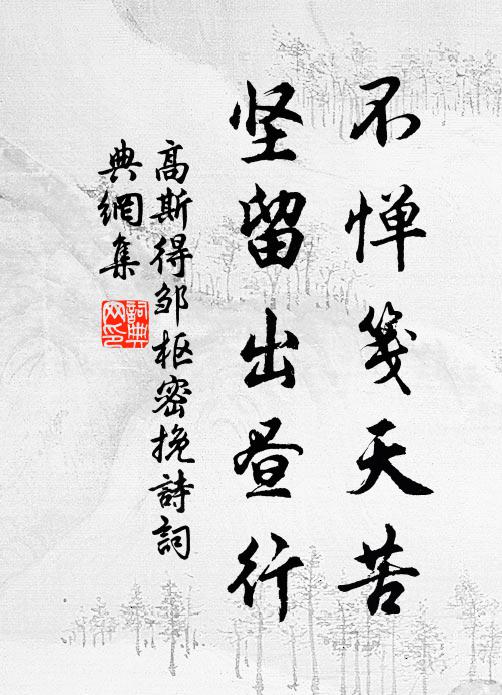 不惮笺天苦
坚留出昼行
高斯得邹枢密挽詩詞
典網集
詞典网印